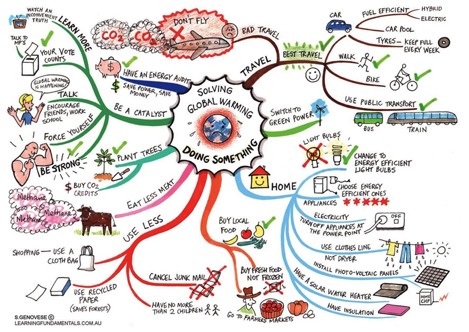 SOLVING
GLOBAL WARMING
DOING SOMETHING
TRAVEL
BAD TRAVEL
DON'T FLY
CO2
CO2
BEST TRAVEL
CAR
FUEL EFFICIENT
HYBRID
ELECTRIC
CAR POOL
TYRES - KEEP FULL
EVERY WEEK
WALK
BIKE
USE PUBLIC TRANSPORT
BUS
TRAIN
SWITCH TO
GREEN POWER
HOME
LIGHT BULBS
CHANGE TO
ENERGY EFFICIENT
LIGHT BULBS
APPLIANCES
CHOOSE ENERGY
EFFICIENT ONES
ELECTRICITY
TURN OFF APPLIANCES AT
THE POWER POINT
OFF
USE CLOTHES LINE
NOT DRYER
INSTALL PHOTO-VOLTAIC PANELS
HAVE A SOLAR WATER HEATER
HAVE INSULATION
BUY LOCAL
FOOD
BUY FRESH FOOD
NOT FROZEN
GO TO FARMERS MARKETS
USE LESS
CANCEL JUNK MAIL
HAVE NO MORE
THAN 2 CHILDREN
SHOPPING
USE A
CLOTH BAG
USE RECYCLED
PAPER
(SAVES FORESTS)
EAT LESS MEAT
Methane
Methane
Methane
PLANT TREES
$ BUY CO2
CREDITS
BE A CATALYST
LEARN MORE
WATCH AN
INCONVENIENT
TRUTH
TALK TO
MP'S
YOUR VOTE
COUNTS
TALK
GLOBAL WARMING
IS HAPPENING!
ENCOURAGE
FRIENDS, WORK,
SCHOOL
FORCE YOURSELF
BE STRONG
HAVE AN ENERGY AUDIT
SAVE POWER, SAVE
MONEY
© GENOVESE
LEARNINGFUNDAMENTALS.COM.AU